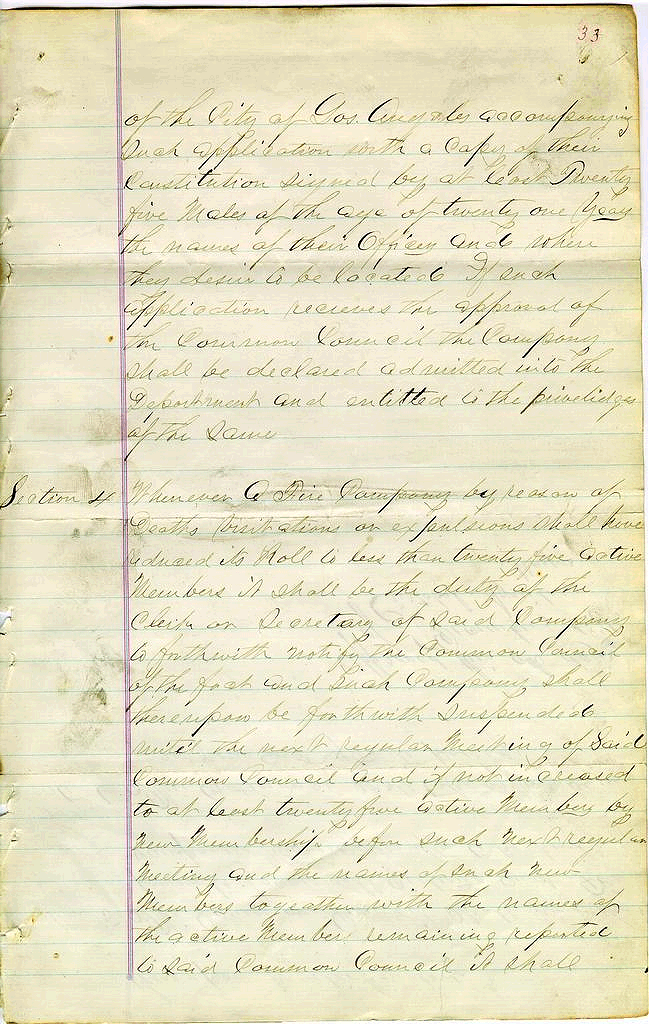 33
of the City of Los Angeles accompanying
such application with a copy of their
Constitution signed by at least Twenty
five Males of the age of twenty one Years
the names of their Officers and where
they desire to be located If such
application recieves the approval of
the Common Council the Company
shall be declared admitted into the
Department and entitled to the priveliedges
of the same
Section 4 Whenever a Fire Company by reason of
Deaths or expulsions shall have
reduced its Roll to less than twenty five active
Members it shall be the duty of the
Clerk or Secretary of said Company
to forthwith notify the Common Council
of the fact and Such Company shall
thereupon be forthwith Suspended
until the next regular Meeting of Said
Common Council and if not increased
to at least twenty five active Members by
New Membership before such next regular
Meeting and the names of such new
Members togeather with the names of
the active Members remaining reported
to said Common Council it shall